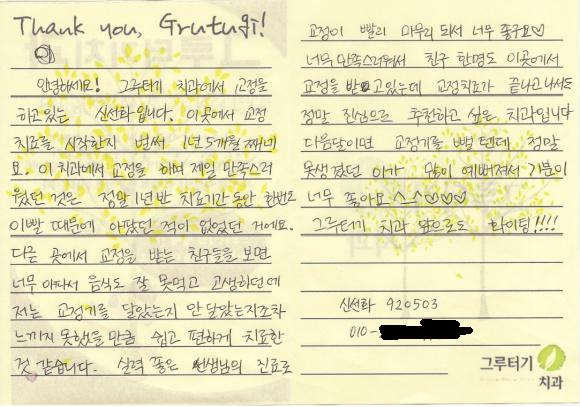 Thank you, Grutugi!
안녕하세요! 그루터기 치과에서 교정을
하고있는 신선화 입니다. 이곳에서 교정
치료를 시작한지 벌써 1년 5개월 째네
요. 이 치과에서 교정을 하며 제일 만족스러
웠던 것은 정말 1년 반 치료기간 동안 한번도
이빨 때문에 아팠던 적이 없었던 거에요.
다른 곳에서 교정을 받는 친구들을 보면
너무 아파서 음식도 잘 못먹고 고생하던데
저는 교정기를 달았는지 안달았는지조차
느끼지 못했을만큼 쉽고 편하게 치료한
것 같습니다. 실력 좋은 선생님의 진료로
교정이 빨리 마무리 되서 너무 좋구요♡
너무 만족스러워서 친구 한명도 이곳에서
교정을 받고있는데 교정치료가 끝나고 나서도
정말 진심으로 추천하고 싶은 치과입니다
다음달이면 교정기를 뺄텐데 정말
못생겼던 이가 많이 예뻐져서 기분이
너무 좋아요^^♡♡♡
그루터기 치과 앞으로도 화이팅!!!!
신선화 920503
010-
그루터기
치과